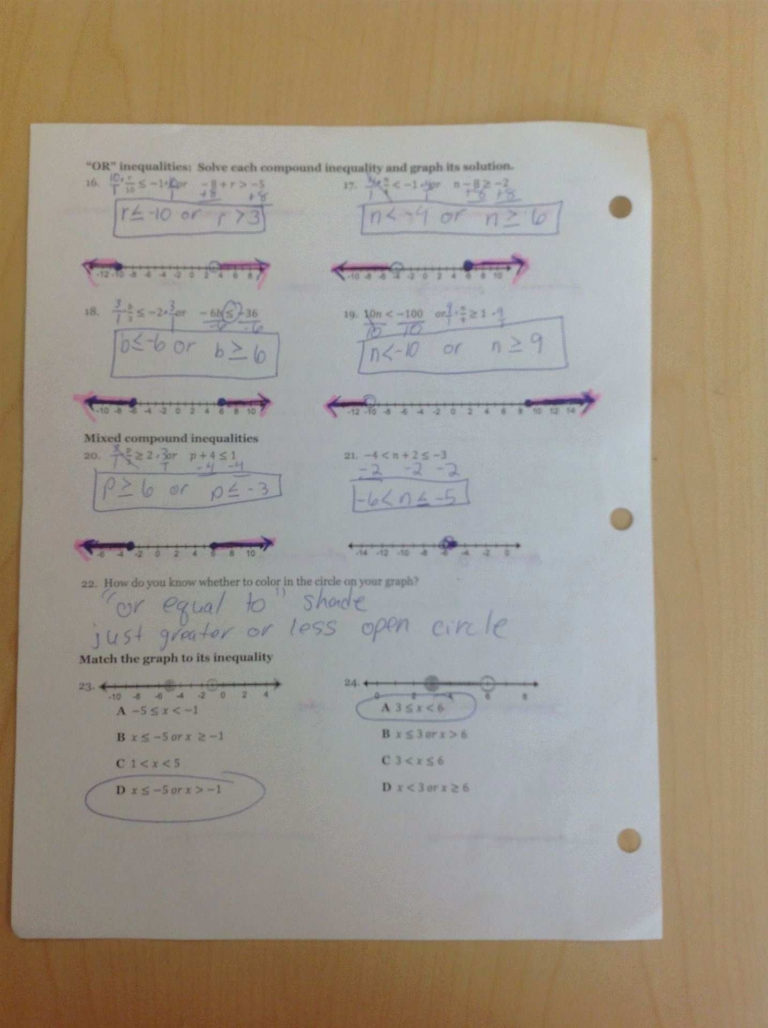 "OR" inequalities: Solve each compound inequality and graph its solution.
16. 10/1 · r/10 ≤ -1 · 10/1 or -8 + r > -5
+8 +8
r ≤ -10 or r > 3
-12 -10 -8 -6 -4 -2 0 2 4 6 8
17. n/4 < -1 · 4/1 or n - 8 ≥ -2
+8 +8
n < -4 or n ≥ 6
-10 -8 -6 -4 -2 0 2 4 6 8 10
18. 3/1 · b/3 ≤ -2 · 3/1 or -6b ≤ -36
-6 -6
b ≤ -6 or b ≥ 6
-10 -8 -6 -4 -2 0 2 4 6 8 10
19. 10n < -100 or 9/1 · n/9 ≥ 1 · 9/1
10 10
n < -10 or n ≥ 9
-12 -10 -8 -6 -4 -2 0 2 4 6 8 10 12 14
Mixed compound inequalities
20. 3/1 · p/3 ≥ 2 · 3/1 or p + 4 ≤ 1
-4 -4
p ≥ 6 or p ≤ -3
-6 -4 -2 0 2 4 6 8 10
21. -4 < n + 2 ≤ -3
-2 -2 -2
-6 < n ≤ -5
-14 -12 -10 -8 -6 -4 -2 0
22. How do you know whether to color in the circle on your graph?
"or equal to" shade
just greater or less open circle
Match the graph to its inequality
23.
-10 -8 -6 -4 -2 0 2 4
A -5 ≤ x < -1
B x ≤ -5 or x ≥ -1
C 1 < x < 5
D x ≤ -5 or x > -1
24.
0 2 4 6 8
A 3 ≤ x < 6
B x ≤ 3 or x > 6
C 3 < x ≤ 6
D x < 3 or x ≥ 6